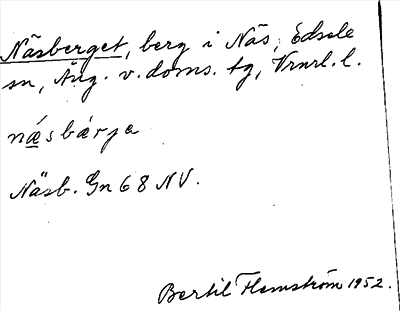 Näsberget, berg i Näs, Edsele
sn, Ång. v. doms. tg, Vrnrl. l.
næsbärja
Näsb. Gn 68 NV.
Bertil Flemström 1952.